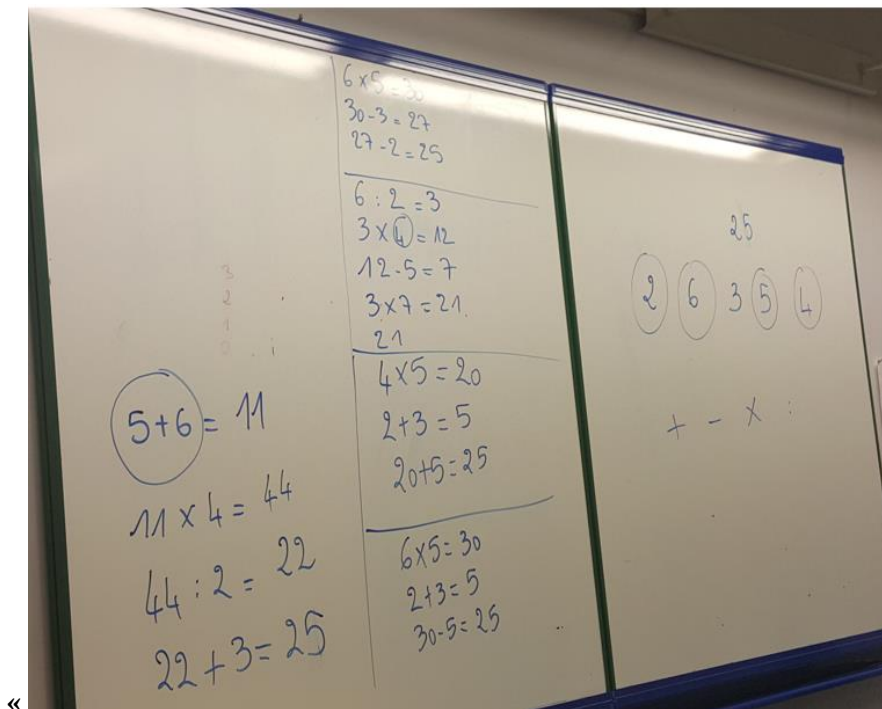 3
2
1
0
5+6 = 11
11 × 4 = 44
44 : 2 = 22
22 + 3 = 25
6 × 5 = 30
30-3 = 27
27-2 = 25
6 : 2 = 3
3 × 4 = 12
12-5 = 7
3 × 7 = 21
21
4×5 = 20
2+3 = 5
20+5 = 25
6×5 = 30
2+3 = 5
30-5 = 25
25
2 6 3 5 4
+ - × :
«